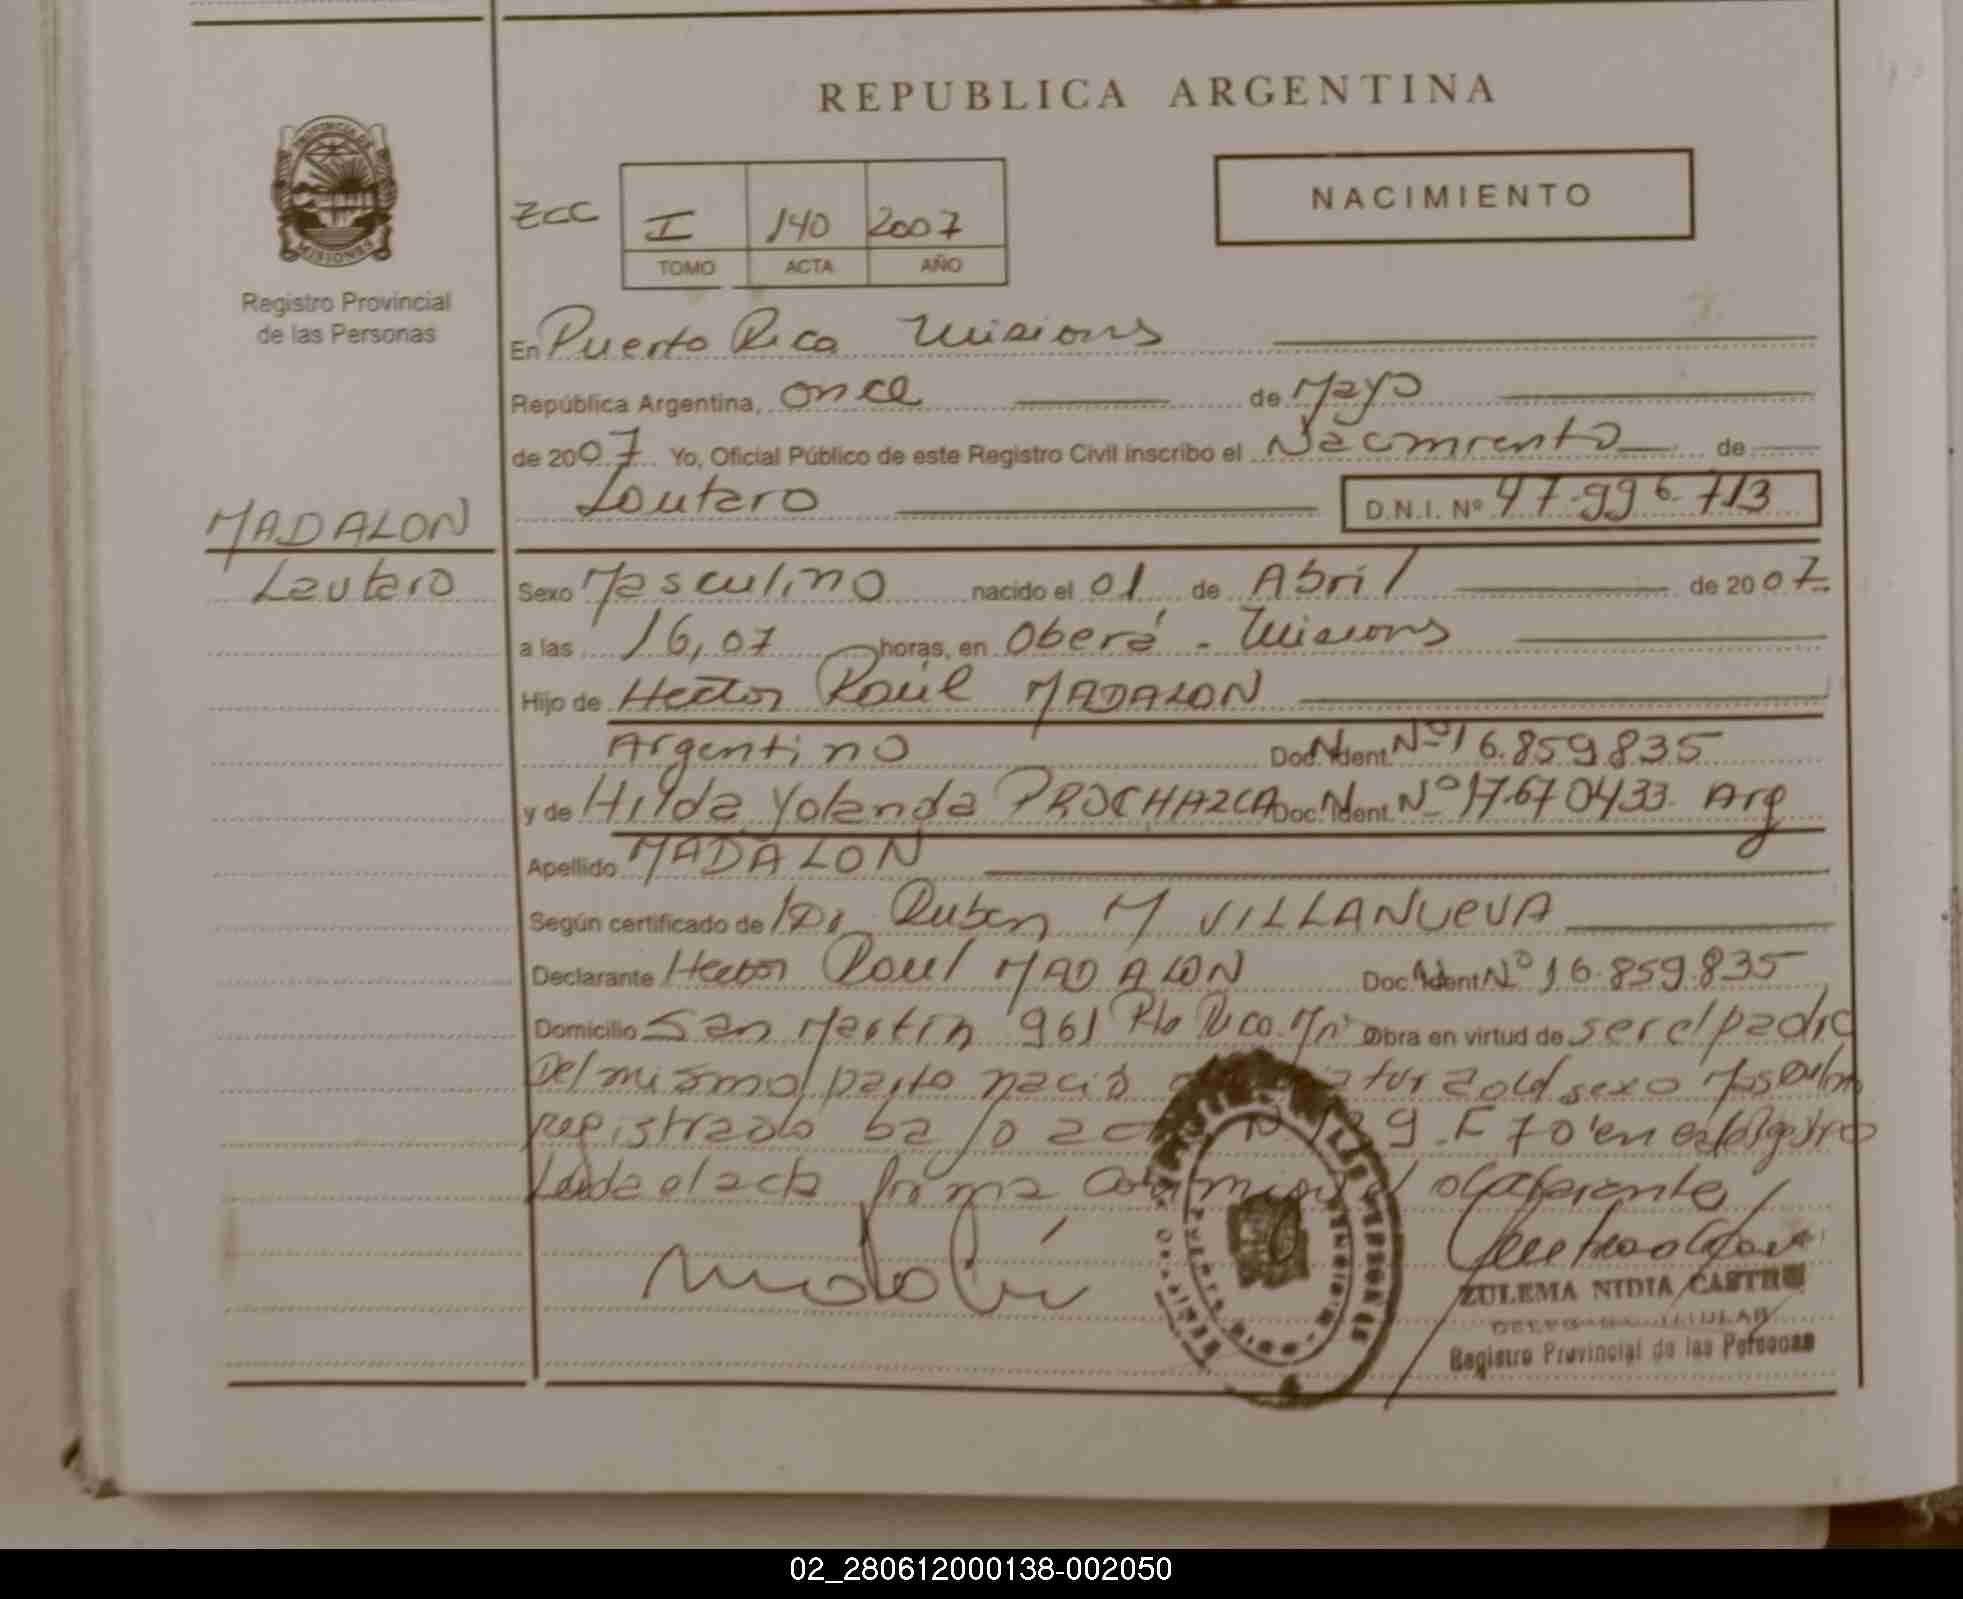 REPUBLICA ARGENTINA
PROVINCIA DE
MISIONES
Registro Provincial
de las Personas
NACIMIENTO
ZCC I 140 2007
TOMO ACTA AÑO
En Puerto Rico Misiones
República Argentina, once de Mayo
de 2007 Yo, Oficial Público de este Registro Civil inscribo el Nacimiento de
Lautaro D.N.I. Nº 47.996.713
MADALON
Lautaro
Sexo Masculino nacido el 01 de Abril de 2007
a las 16,07 horas, en Oberá - Misiones
Hijo de Hector Raúl MADALON
Argentino Doc. Ident. Nº 16.859.835
y de Hilda Yolanda PROCHAZCA Doc. Ident. Nº 17.670433. Arg
Apellido MADALON
Según certificado de Dr Ruben M VILLANUEVA
Declarante Hector Raul MADALON Doc. Ident Nº 16.859.835
Domicilio San Martin 961 Pto Rico. Mn Obra en virtud de ser el padre
Del mismo parto nació sexo Masculino
registrado bajo acta Nº 139 . F 70 en este Registro
Leida el acta firma el declarante
ZULEMA NIDIA CASTRO
TITULAR
Registro Provincial de las Personas
02_280612000138-002050